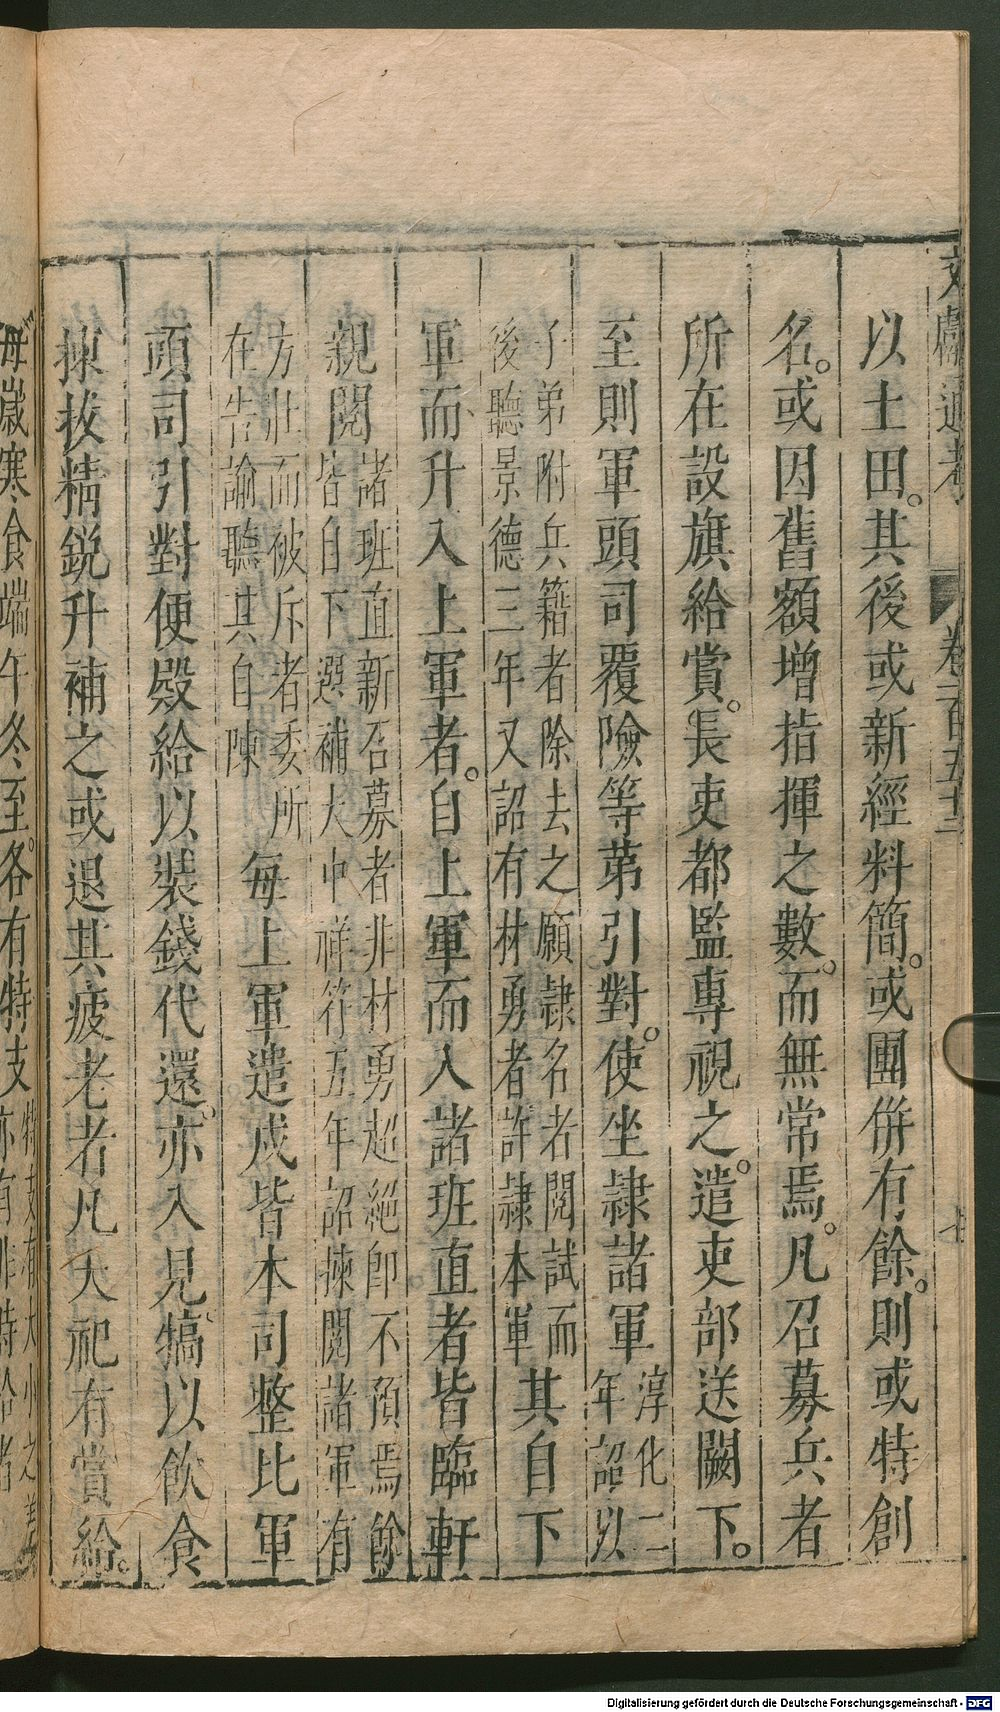 文獻通考 卷一百五十二 七
以土田。其後或新經料簡。或團併有餘。則或特創
名。或因舊額增指揮之數。而無常焉。凡召募兵者
所在設旗給賞。長吏都監專視之。遣吏部送闕下。
至則軍頭司覆險等第引對。使坐隷諸軍
淳化二
年詔以
子弟附兵籍者除去之願隷名者閱試而
後聽景德三年又詔有材勇者許隷本軍
其自下
軍而升入上軍者。自上軍而入諸班直者皆臨軒
親閱
諸班直新召募者非材勇超絕即不預焉餘
皆自下選補大中祥符五年詔揀閱諸軍有
方壯而被斥者委所
在告諭聽其自陳
每上軍遣戍皆本司整比軍
頭司引對便殿給以裝錢代還。亦入見。犒以飲食
揀拔精銳升補之或退其疲老者凡大祀有賞給。
每歲寒食端午冬至。各有特支
特支有大小之差
亦有非時給者
Digitalisierung gefördert durch die Deutsche Forschungsgemeinschaft - DFG